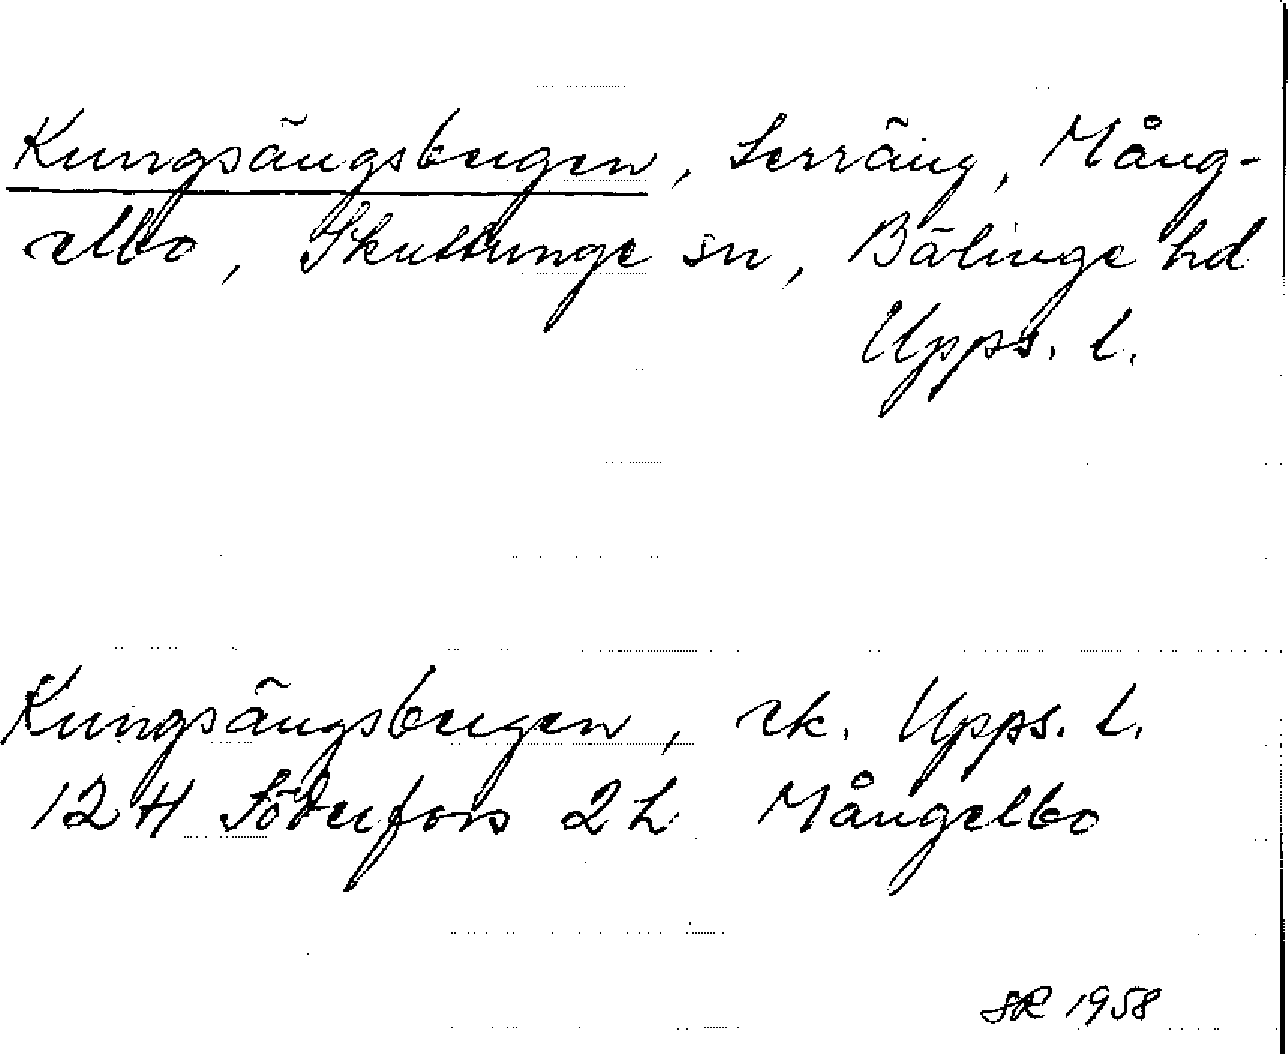 Kungsängsbergen, terräng, Mång-
elbo, Skuttunge sn, Bälinge hd
Upps. l.
Kungsängsbergen, ek. Upps. l.
12 H Söderfors 2 h Mångelbo
SR 1958